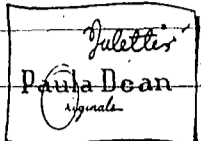 Julettes'
Paula Dean
riginals